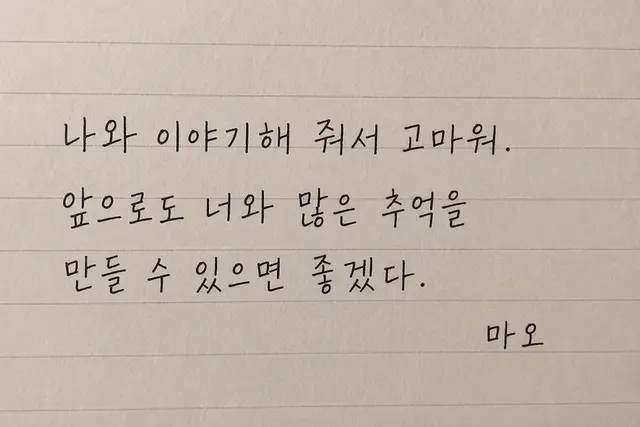 나와 이야기해 줘서 고마워.
앞으로도 너와 많은 추억을
만들 수 있으면 좋겠다.
마오